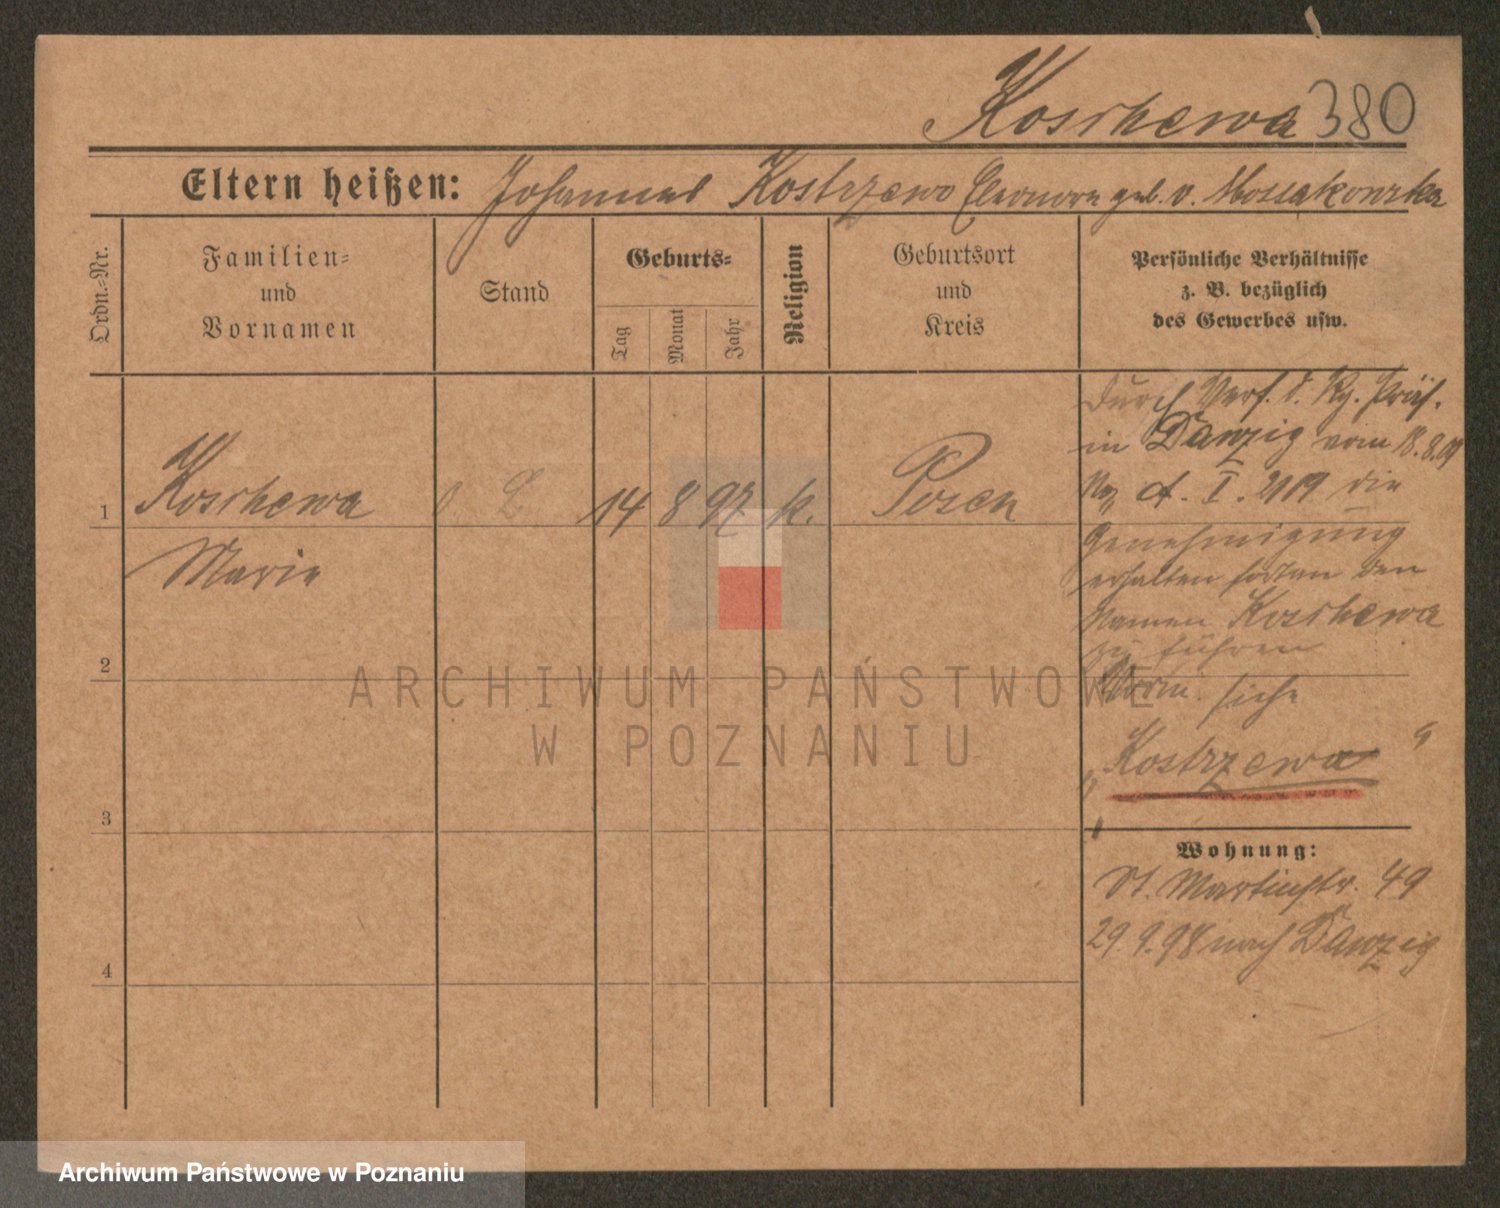 Koschewa 380
Eltern heißen: Johannes Kostrzewa Eleonore geb. v. Mossakowska
Ordn.-Nr.
Familien-
und
Vornamen
Stand
Geburts-
Tag
Monat
Jahr
Religion
Geburtsort
und
Kreis
Persönliche Verhältnisse
z. B. bezüglich
des Gewerbes usw.
Durch Verf. d. Rg. Präs.
in Danzig vom 18.8.09
A. I. die
1 Koschewa 14 8 97 k. Posen
Genehmigung
Marie
erhalten fortan den
Namen Koschewa
zu führen
2
siehe
„Kostrzewa“
3
Wohnung:
St. Martinstr. 49
29.9.98 nach Danzig
4
ARCHIWUM PAŃSTWOWE
W POZNANIU
Archiwum Państwowe w Poznaniu